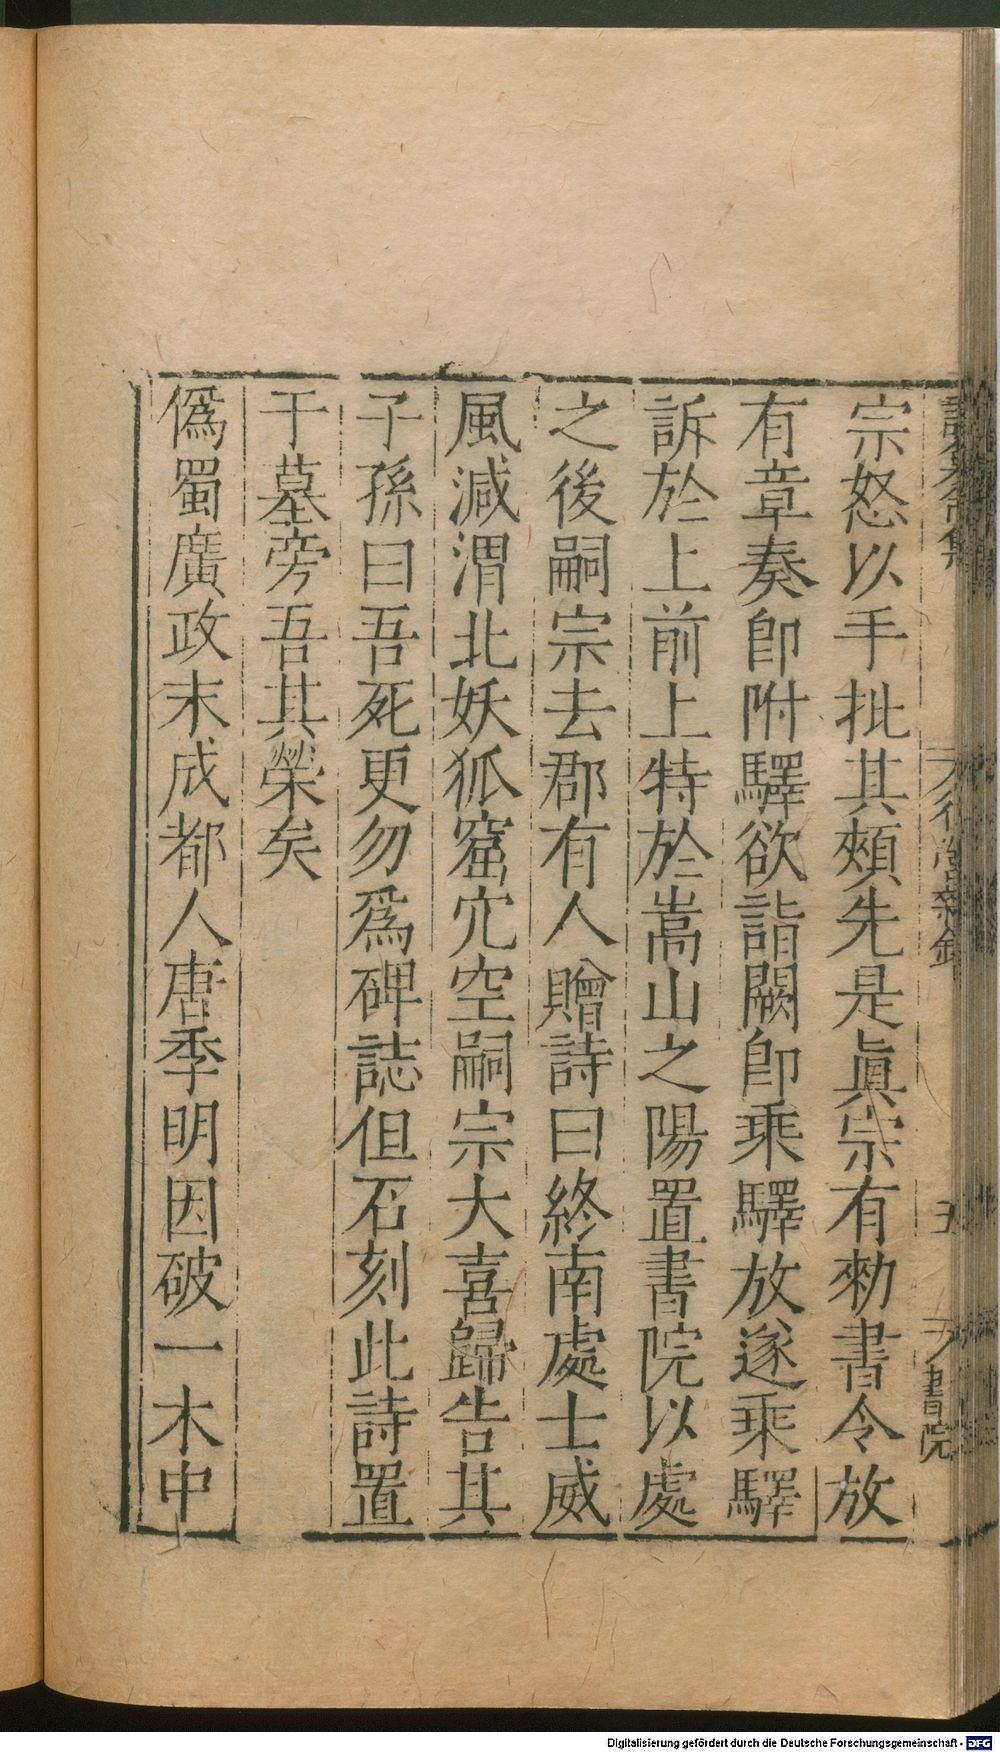 宗怒以手批其頰先是眞宗有勑書令放
有章奏卽附驛欲詣闕卽乘驛放遂乘驛
訴於上前上特於嵩山之陽置書院以處
之後嗣宗去郡有人贈詩曰終南處士威
風減渭北妖狐窟穴空嗣宗大喜歸告其
子孫曰吾死更勿爲碑誌但石刻此詩置
于墓旁吾其榮矣
僞蜀廣政末成都人唐季明因破一木中
書院
Digitalisierung gefördert durch die Deutsche Forschungsgemeinschaft - DFG